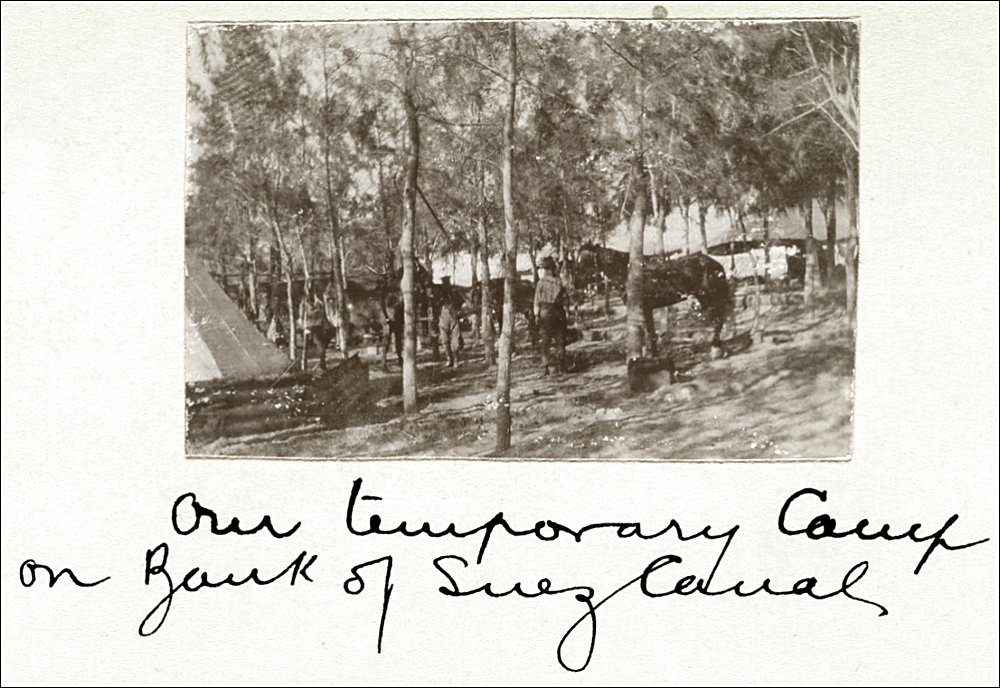 Our temporary Camp
on Bank of Suez Canal